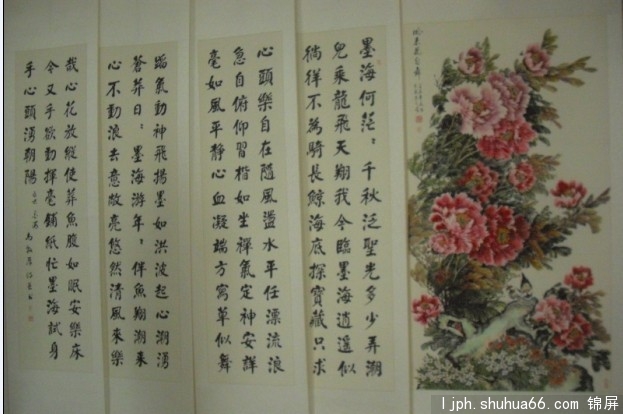 墨海何茫〻千秋泛聖光多少弄潮
兒乘龍飛天翔我今臨墨海逍遙似
徜徉不為騎長鯨海底探寶藏只求
心頭樂自在隨風盪水平任漂流浪
急自俯仰習楷如坐禪氣定神安詳
毫如風平靜心血凝端方寫草似舞
蹈氣動神飛揚墨如洪波起心潮湧
蒼莽日〻墨海游年〻伴魚翔潮來
心不動浪去意敞亮悠然清風來樂
我心花放縱使葬魚腹如眠安樂床
今又手欲動揮毫鋪紙忙墨海試身
手心頭湧朝陽
ljph.shuhua66.com 锦屏